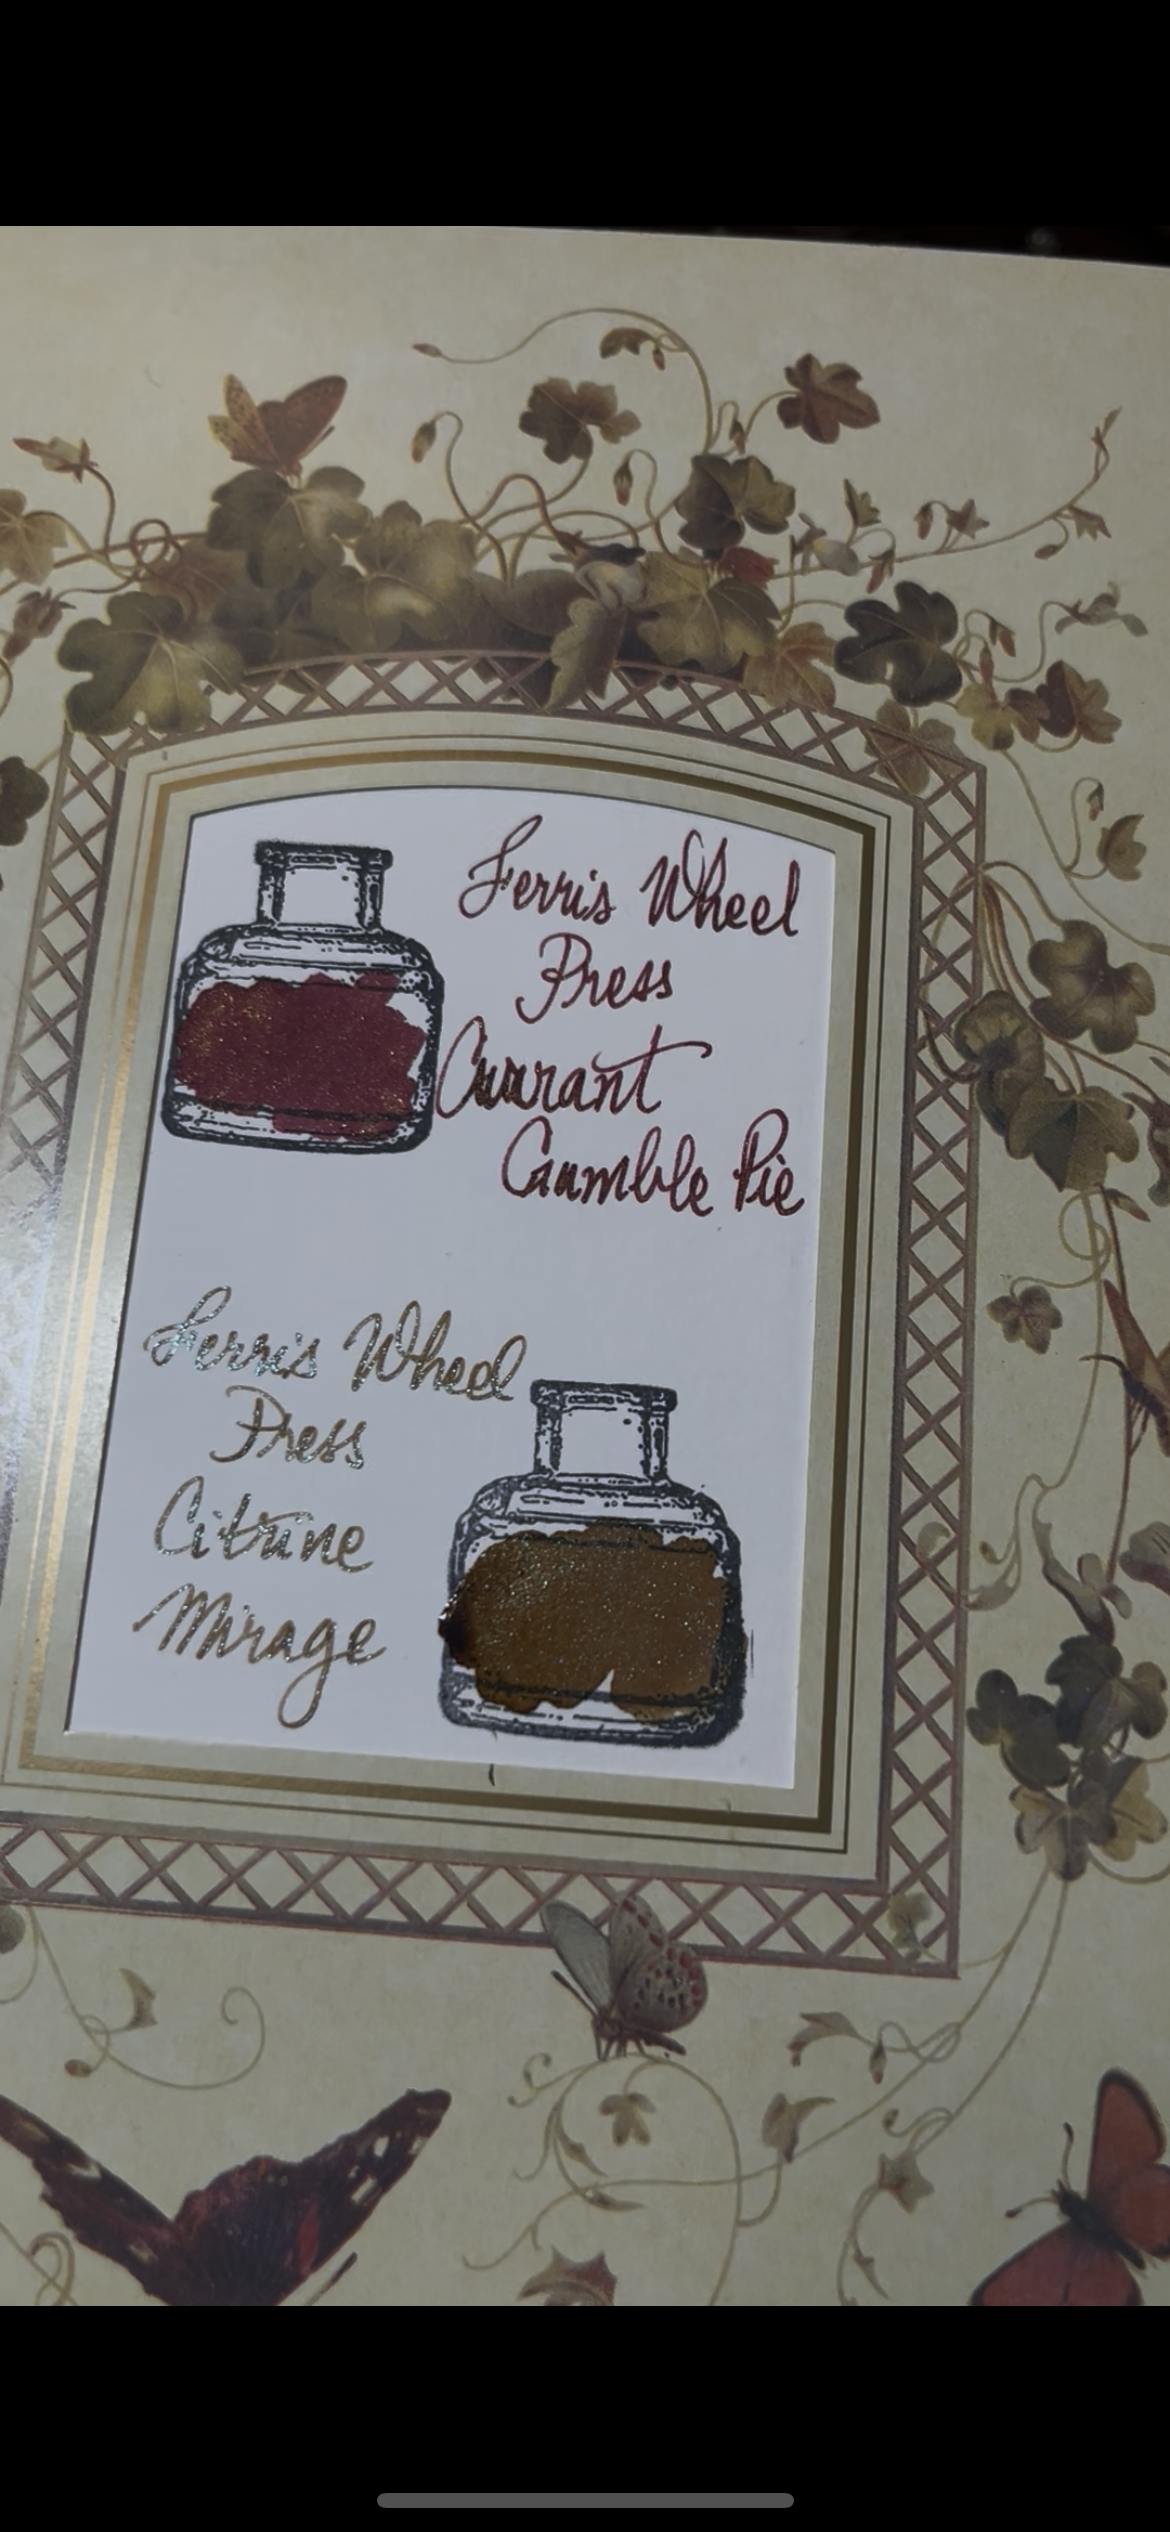 Ferris Wheel
Press
Currant
Crumble Pie
Ferris Wheel
Press
Citrine
Mirage